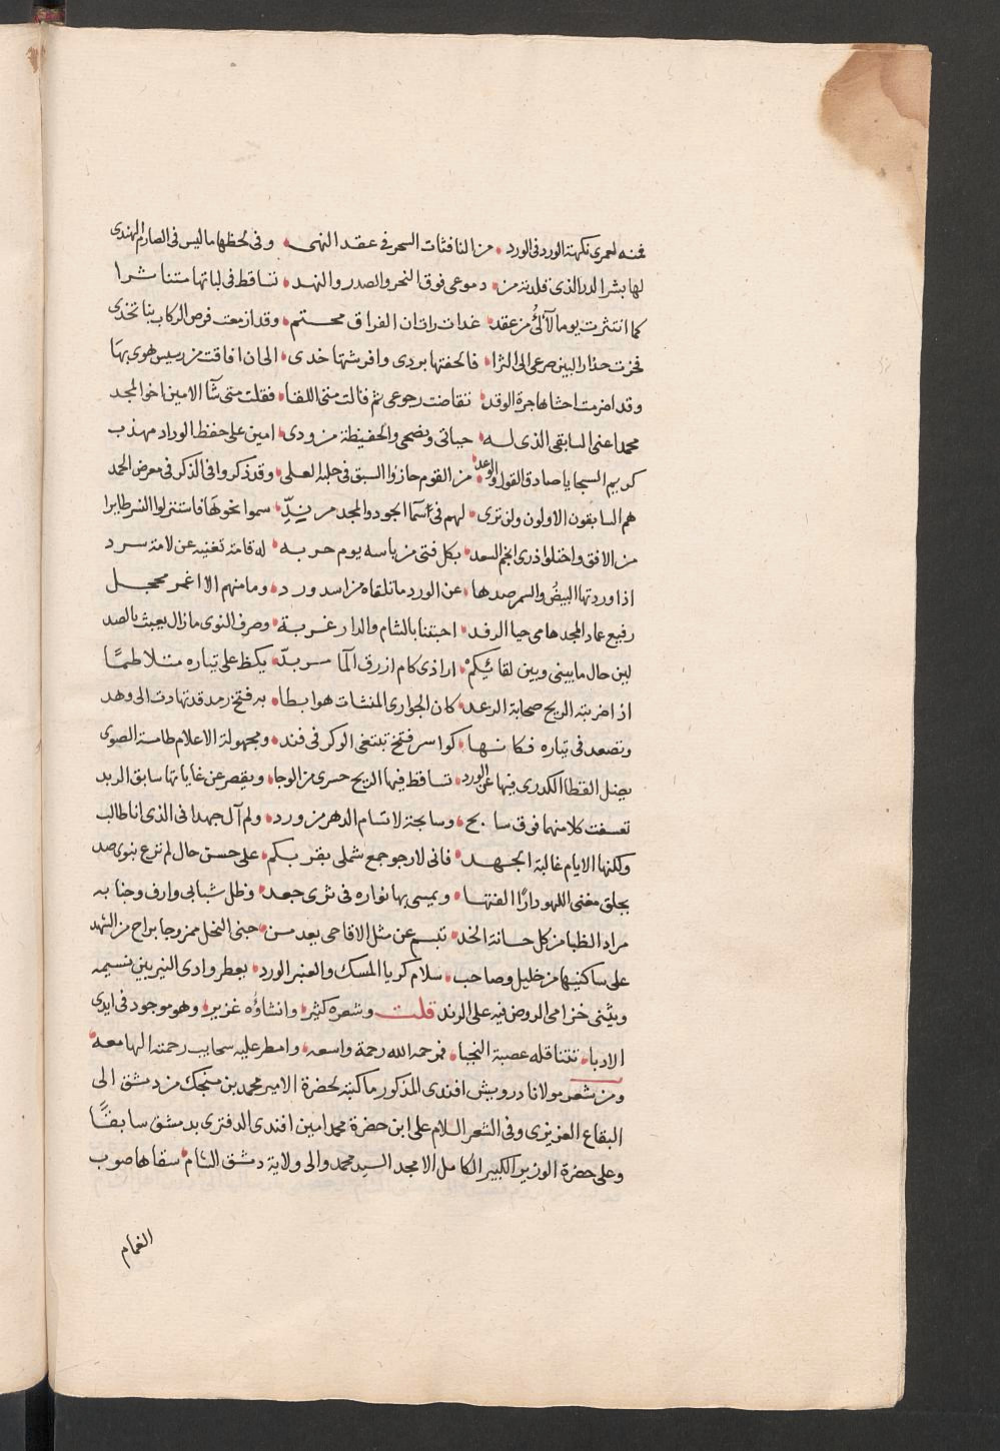 فمنه لعمرى نكهة الورد فى الورد • من النافثات السحر فى عقد النهى • وفى لحظها ما ليس فى الصارم الهندى
لها بشر الدر الذى قلدته من • دموعى فوق النحر والصدر والنهد • تساقط فى لباتها متناثرا
كما انتثرت يوما لآلئ من عقد • غداة رات ان الفراق محتم • وقد ازمعت فرص الركاب بنا تخدى
فخرت حذار البين صرعى الى الثرا • فالحفتها بردى وافرشتها خدى • الى ان افاقت من رسيس هوى بها
وقد اضرمت احشاها جرة الوقد • تقاضت رجوعى ثم قالت متى اللقا • فقلت متى شآ الامين اخو المجد
محمد اعنى السابقى الذى له • حياتى ونصحى والحفيظة من ودى • امين على حفظ الوداد مهذب
كريم السجايا صادق القول والوعد • من القوم حازوا السبق فى حلبة العلى • وقد ذكروا فى الذكر فى معرض الحمد
هم السابقون الاولون ولن ترى • لهم فى سما الجود والمجد من ندّ • سموا نحوها فاستنزلوا النسر طايرا
من الافق واختلوا ذرى انجم السعد • بكل فتى من باسه يوم حربه • له قامة تغنيه عن لامة سرد
اذا وردتها البيض والسمر صدها • عن الورد ما تلقاه من اسد ورد • وما منهم الا اغر محجل
رفيع عماد المجد هامى حيا الرفد • احبتنا بالشام والدار غربة • وصرف النوى ما زال يعبث بالصد
لين حال ما بينى وبين لقائيكم • اراذى كام ازرق المآ سربدّ • يكظ على تياره متلاطمًا
اذ اضربته الريح صحابة الرعد • كان الجوارى المنشات هوابطا • به فتخ رمد قد تهادت الى وهد
وتصعد فى تياره فكانها • كواسر فتخ تبتغى الوكر فى فند • ومجهولة الاعلام طامسة الصوى
يضل القطا الكدرى فيها عن الورد • تساقط فيها الريح حسرى من الوجا • ويقصر عن غاياتها سابق الربد
تعسفت كلا منهما فوق سابح • وسابحة لا تسام الدهر من ورد • ولم آل جهدا فى الذى انا طالب
ولكنها الايام غالبة الجهد • فانى لارجو جمع شملى بقربكم • على حسن حال لم ترع بنوى صد
بجلق مغنى اللهو دارًا الفتها • ويمسى بها نواره فى ثرى جعد • وظل شبابى وارف وجنابه
مراد الظبا من كل حسانة الخد • تبسم عن مثل الاقاحى بعد من • جنى النحل ممزوجا براح من الشهد
على ساكنيها من خليل وصاحب • سلام كريا المسك والعنبر الورد • يعطر وادى النيربين نسيمه
ويثنى خزامى الروض فيه على الرند قلت وشعره كثير • وانشاؤه غزير • وهو موجود فى ايدى
الادبا • تتناقله عصبة النجبا • فرحمه الله رحمة واسعه • وامطر عليه سحايب رحمته الهامعه •
ومن شعر مولانا درويش افندى المذكور ما كتبه لحضرة الامير محمد بن منجك من دمشق الى
البقاع العزيزى وفى الشعر السلام على ابن حضرة محمد امين افندى الدفترى بدمشق سابقًا
وعلى حضرة الوزير الكبير الكامل الامجد السيد محمد والى ولاية دمشق الشام • سقاها صوب
الغمام